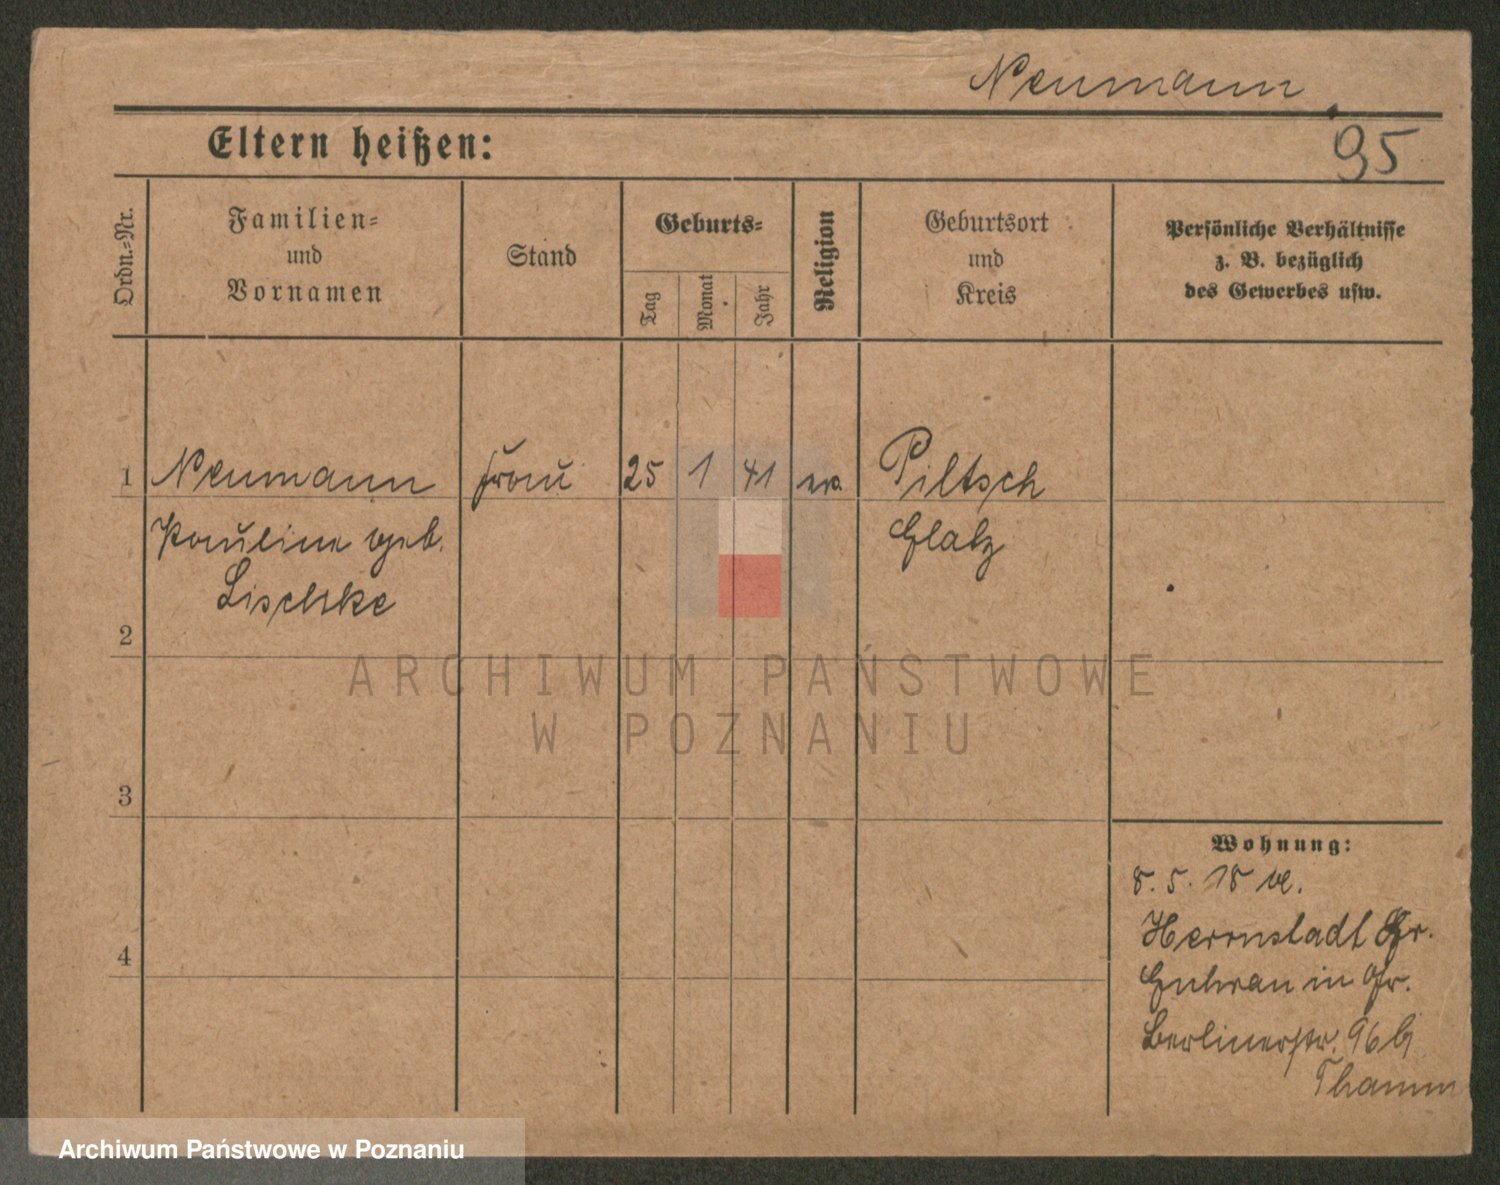 Neumann
95
Eltern heißen:
Ordn.=Nr.
Familien=
und
Vornamen
Stand
Geburts=
Tag
Monat
Jahr
Religion
Geburtsort
und
Kreis
Persönliche Verhältnisse
z. B. bezüglich
des Gewerbes usw.
1 Neumann Frau 25 1 41 ev. Piltsch
Pauline geb. Glatz
Lischke
2
3
4
Wohnung:
8. 5. 18
Herrnstadt Kr.
Guhrau in
Berlinerstr. 96b
Thamm
ARCHIWUM PAŃSTWOWE
W POZNANIU
Archiwum Państwowe w Poznaniu